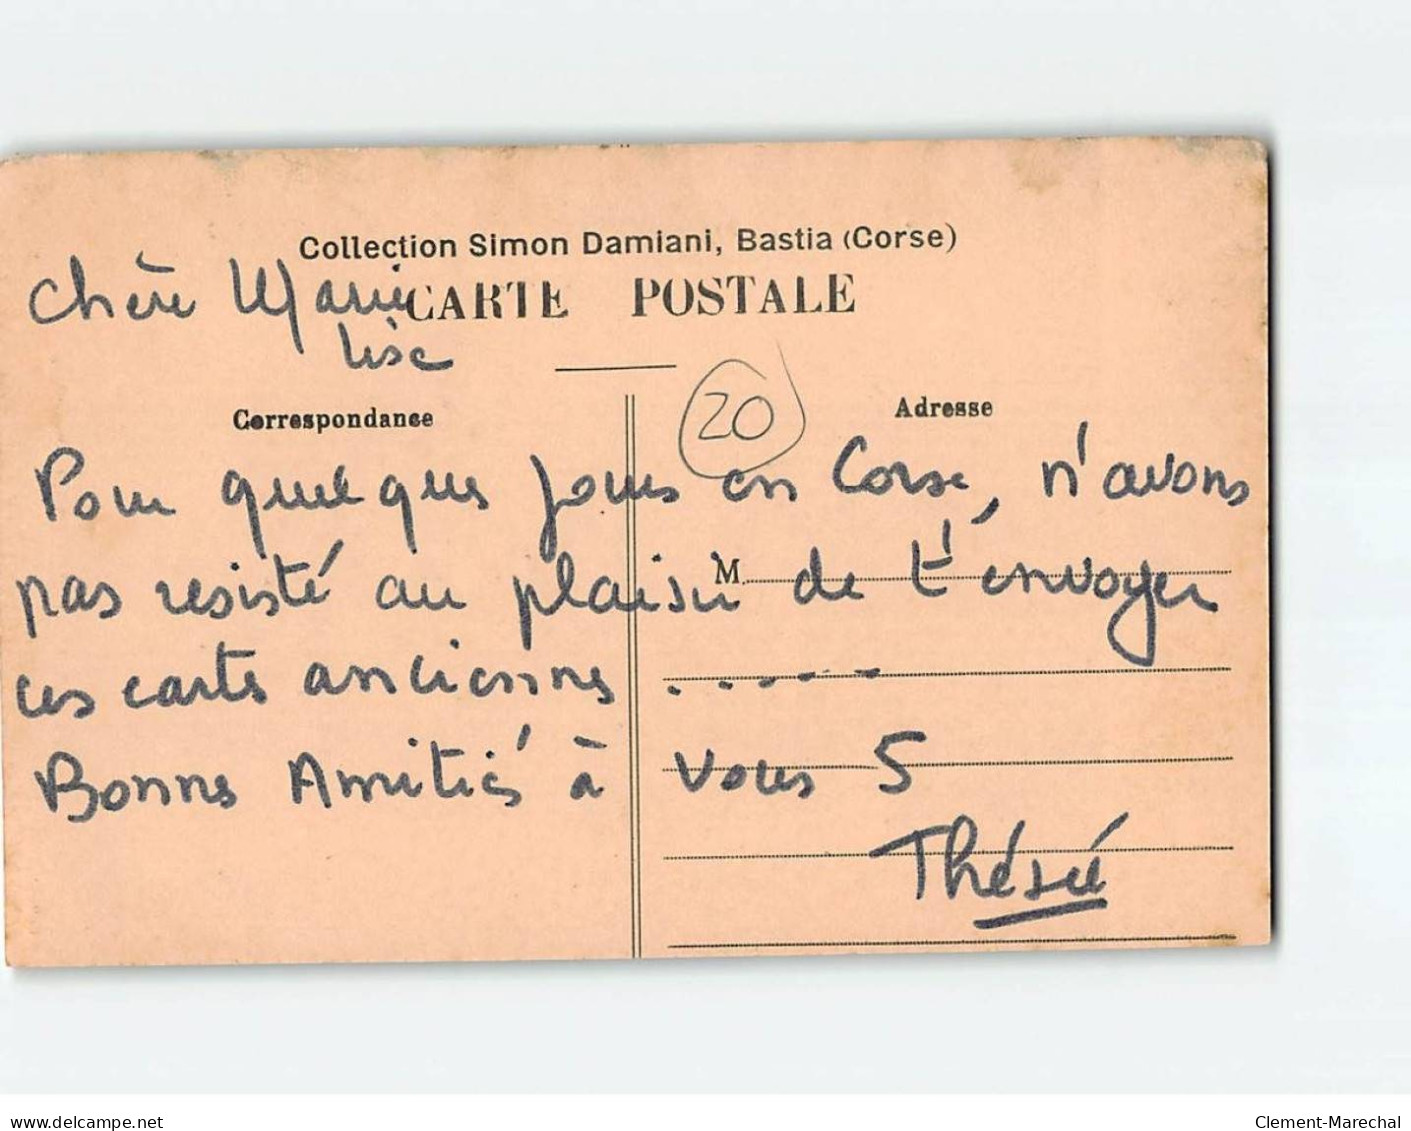 Collection Simon Damiani, Bastia (Corse)
CARTE POSTALE
Chère Marie
Lise
Correspondance
20
Adresse
Pour quelques jours en Corse, n'avons
pas resisté au plaisir de t'envoyer
M.
ces cartes anciennes . . . . .
Bonnes Amitiés à vous 5
www.delcampe.net
Clement-Marechal